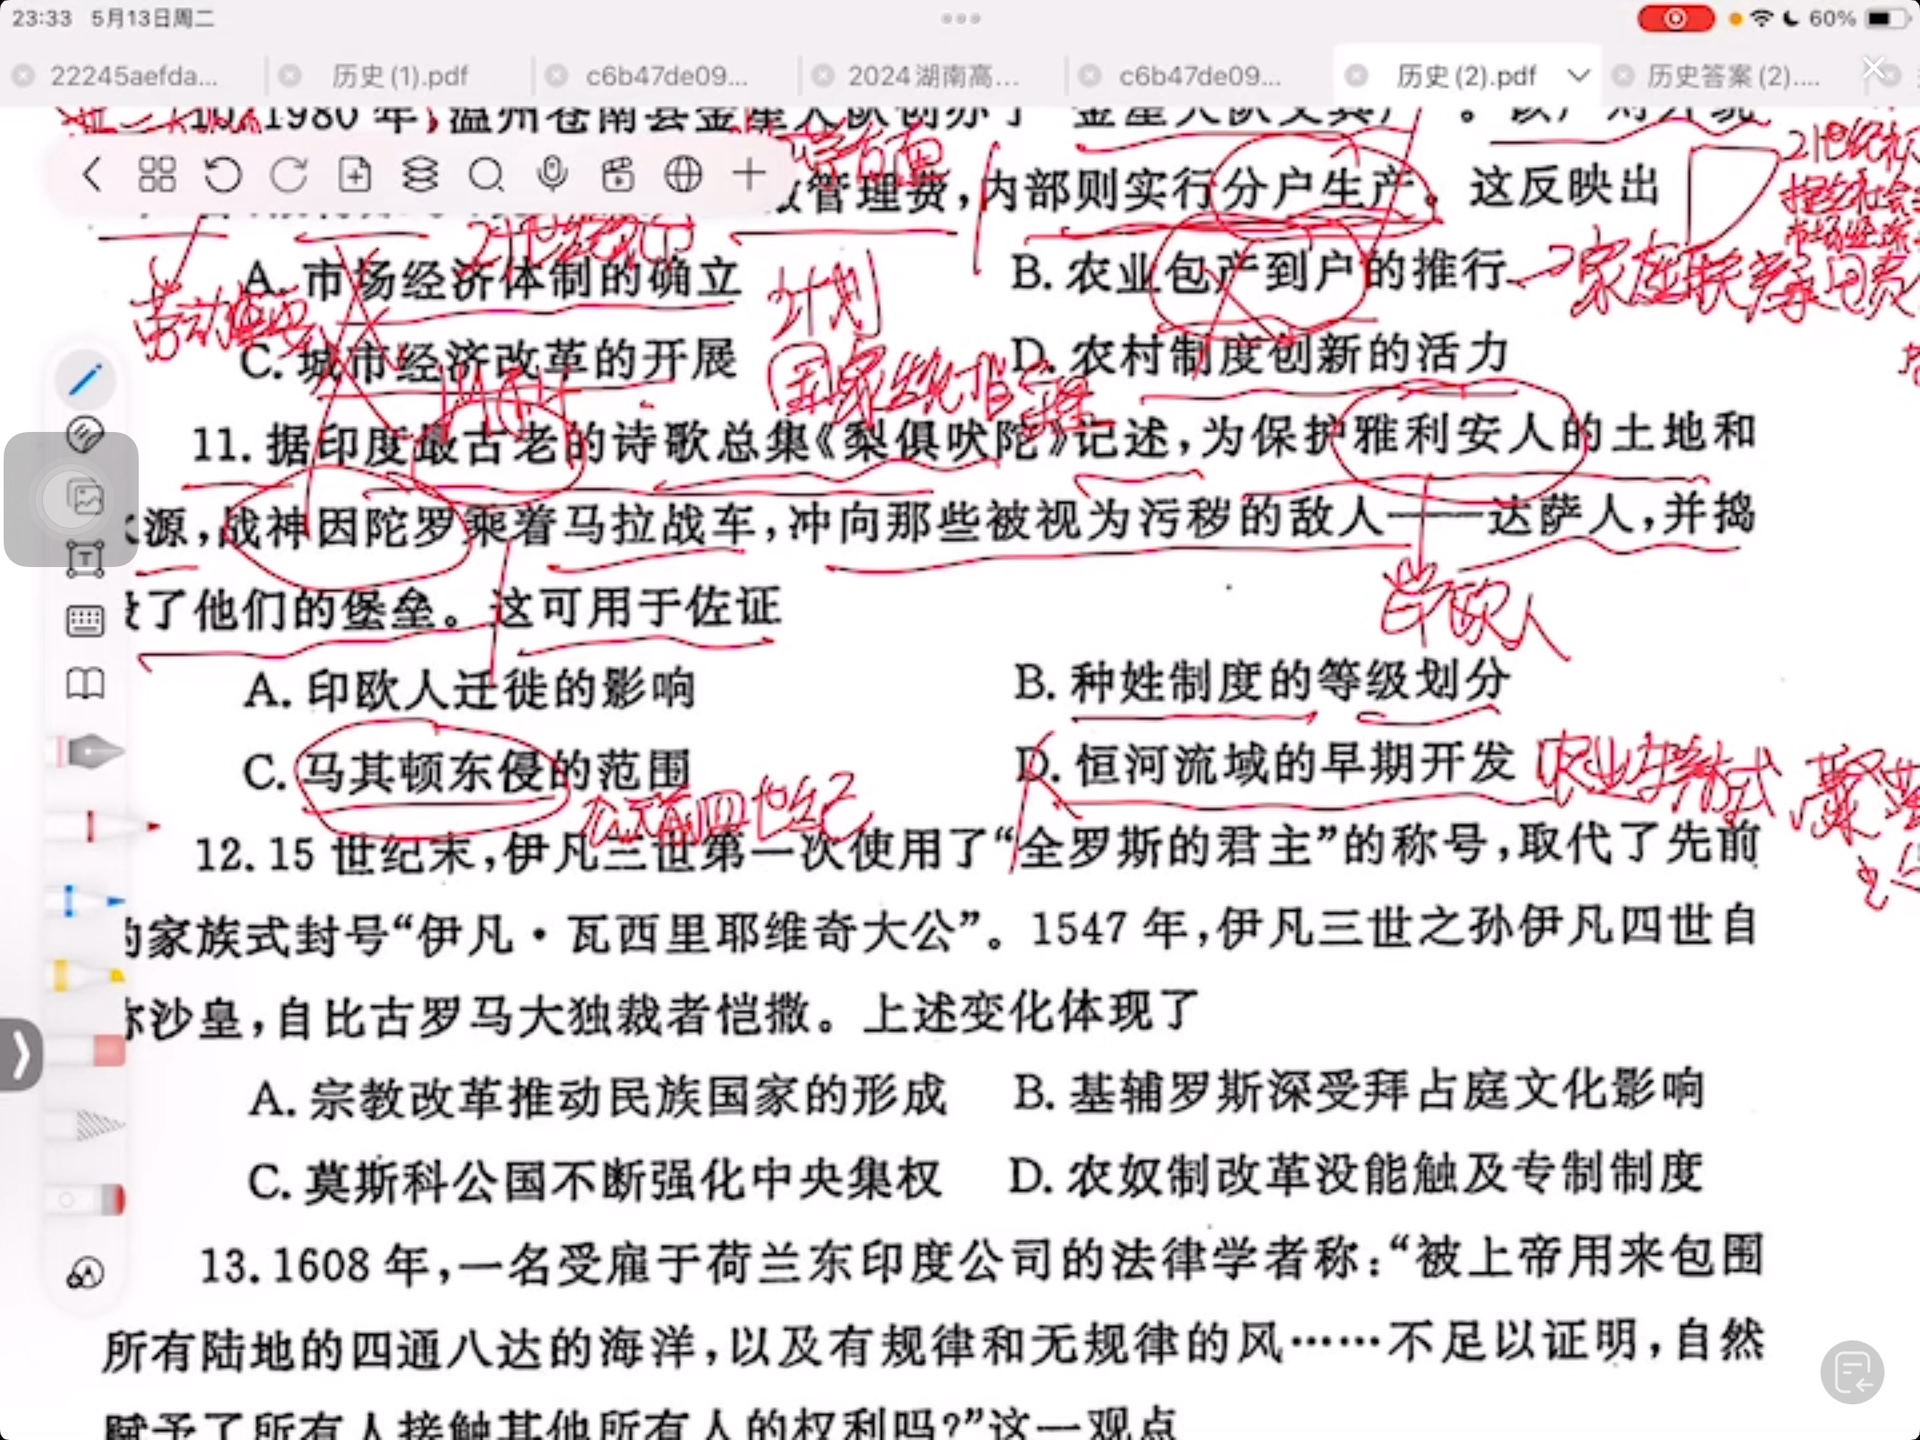 23:33 5月13日周二
60%
22245aefda...
历史(1).pdf
c6b47de09...
2024湖南高...
c6b47de09...
历史(2).pdf
历史答案(2)....
10.1980年,温州苍南县金星大队创办了“金星大队文具厂”。该厂对外统
管理费,内部则实行分户生产。这反映出
21世纪初
A.市场经济体制的确立
B.农业包产到户的推行
计划
C.城市经济改革的开展
D.农村制度创新的活力
国家
11.据印度最古老的诗歌总集《梨俱吠陀》记述,为保护雅利安人的土地和
源,战神因陀罗乘着马拉战车,冲向那些被视为污秽的敌人——达萨人,并捣
了他们的堡垒。这可用于佐证
印欧人
A.印欧人迁徙的影响
B.种姓制度的等级划分
C.马其顿东侵的范围
D.恒河流域的早期开发
公元前四世纪
12.15世纪末,伊凡三世第一次使用了“全罗斯的君主”的称号,取代了先前
的家族式封号“伊凡·瓦西里耶维奇大公”。1547年,伊凡三世之孙伊凡四世自
称沙皇,自比古罗马大独裁者恺撒。上述变化体现了
A.宗教改革推动民族国家的形成
B.基辅罗斯深受拜占庭文化影响
C.莫斯科公国不断强化中央集权
D.农奴制改革没能触及专制制度
13.1608年,一名受雇于荷兰东印度公司的法律学者称:“被上帝用来包围
所有陆地的四通八达的海洋,以及有规律和无规律的风……不足以证明,自然
赋予了所有人接触其他所有人的权利吗?”这一观点